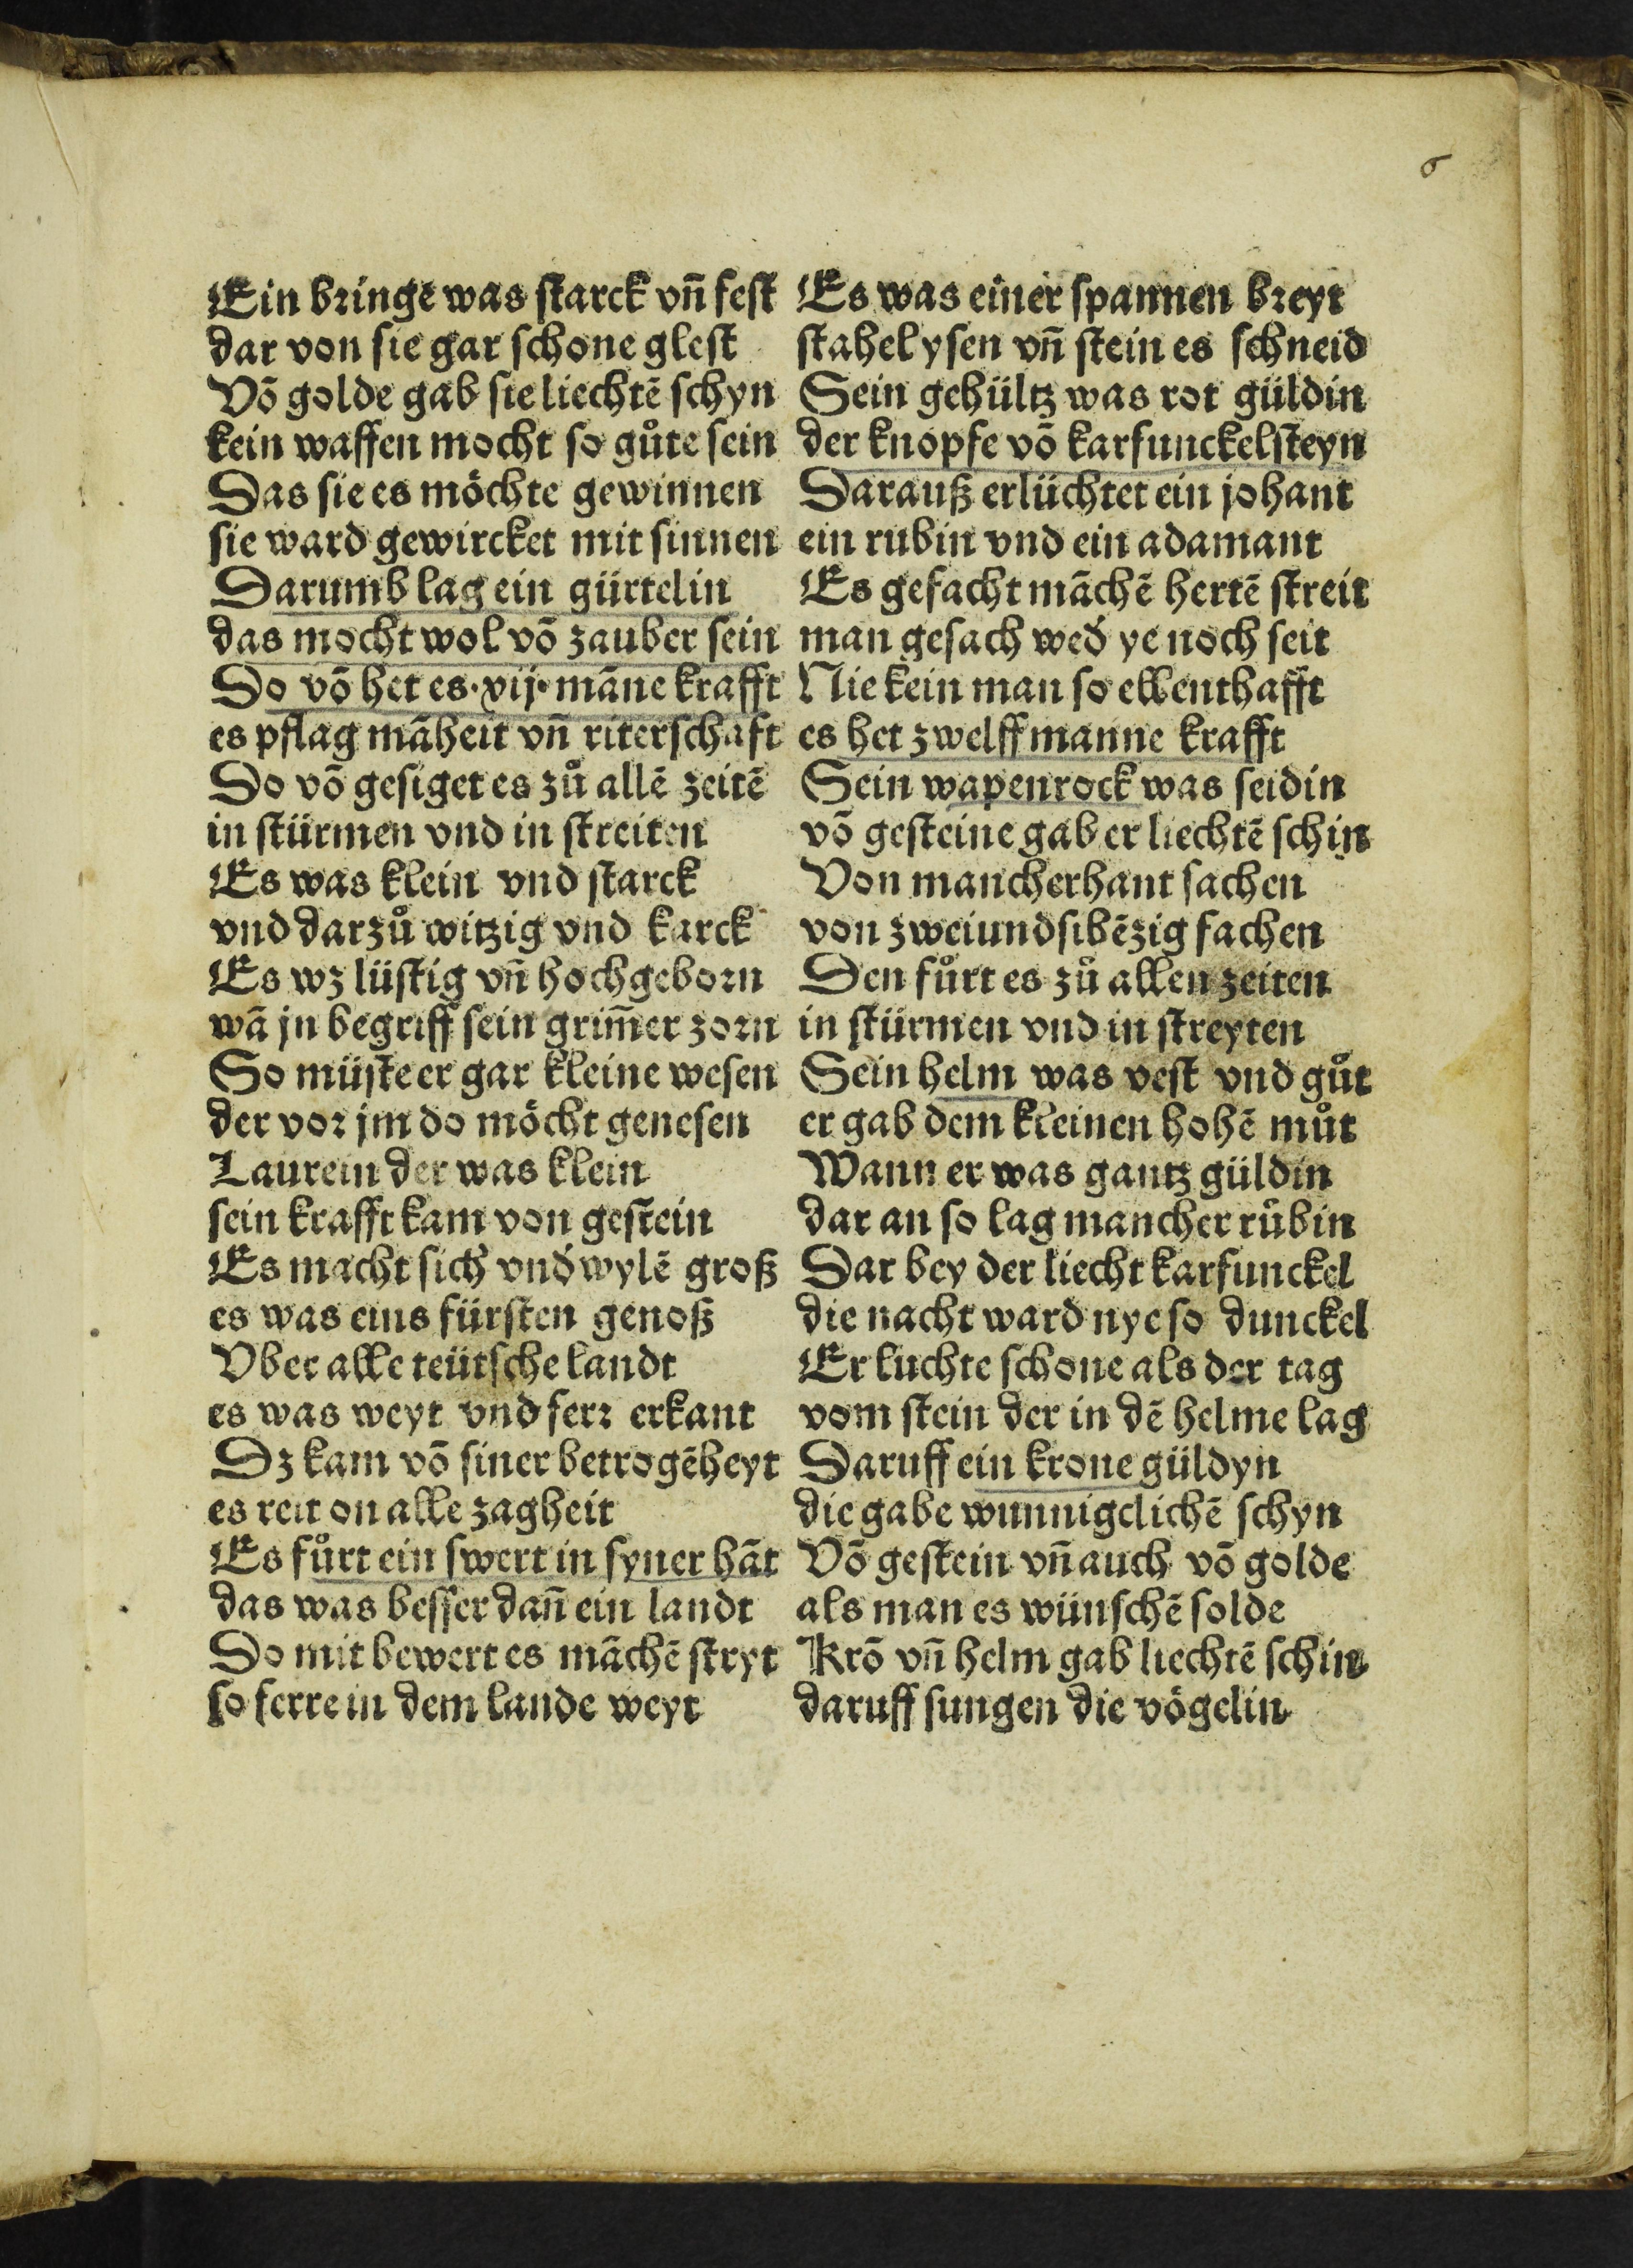 6
Ein bringē was starck vn̄ fest
dar von sie gar schone glest
Vō golde gab sie liechtē schyn
kein waffen mocht so gůte sein
Das sie es möchte gewinnen
sie ward gewircket mit sinnen
Darumb lag ein gürtelin
das mocht wol vō zauber sein
Do vō het es·xij·māne krafft
es pflag māheit vn̄ riterschaft
Do vō gesiget es zů allē zeitē
in stürmen vnd in streiten
Es was klein vnd starck
vnd darzů witzig vnd karck
Es wz lüstig vn̄ hochgeborn
wā jn begriff sein grim̄er zorn
So müste er gar kleine wesen
der vor jm do möcht genesen
Laurein der was klein
sein krafft kam von gestein
Es macht sich vnd̛ wylē groß
es was eins fürsten genoß
Vber alle teütsche landt
es was weyt vnd ferr erkant
Dz kam vō siner betrogēheyt
es reit on alle zagheit
Es fůrt ein swert in syner hāt
das was besser dan̄ ein landt
Do mit bewert es māchē stryt
so ferre in dem lande weyt
Es was einer spannen breyt
stahel ysen vn̄ stein es schneid
Sein gehültz was rot güldin
der knopfe vō karfunckelsteyn
Darauß erlüchtet ein johant
ein rubin vnd ein adamant
Es gefacht māchē hertē streit
man gesach wed̛ ye noch seit
Nie kein man so ellenthafft
es het zwelff manne krafft
Sein wapenrock was seidin
vō gesteine gab er liechtē schin
Von mancherhant sachen
von zweiundsibēzig fachen
Den fůrt es zů allen zeiten
in stürmen vnd in streyten
Sein helm was vest vnd gůt
er gab dem kleinen hohē můt
Wann er was gantz güldin
dar an so lag mancher růbin
Dar bey der liecht karfunckel
die nacht ward nye so dunckel
Er luchte schone als der tag
vom stein der in dē helme lag
Daruff ein krone güldyn
die gabe wunnigclichē schyn
Vō gestein vn̄ auch vō golde
als man es wünschē solde
Krō vn̄ helm gab liechtē schin
daruff sungen die vögelin